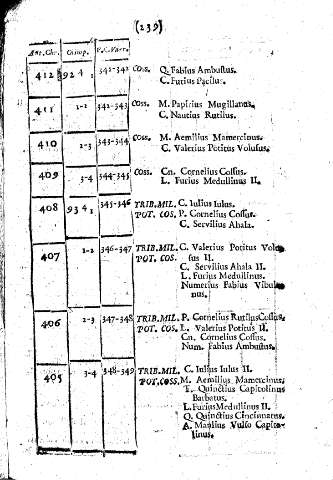 (239)
Ant. Chr. Olimp. V.C. Varr.
412 924, 341-342 COSS. Q. Fabius Ambustus.
C. Furius Pacilus.
411 1-2 342-343 COSS. M. Papirius Mugillanus.
C. Nautius Rutilus.
410 2-3 343-344 COSS. M. Aemilius Mamercinus.
C. Valerius Potitus Volusus.
409 3-4 344-345 COSS. Cn. Cornelius Cossus.
L. Furius Medullinus II.
408 934, 345-346 TRIB. MIL. C. Iulius Iulus.
POT. COS. P. Cornelius Cossus.
C. Servilius Ahala.
407 1-2 346-347 TRIB. MIL. C. Valerius Potitus Volu
POT. COS. sus II.
C. Servilius Ahala II.
L. Furius Medullinus.
Numerius Fabius Vibula
nus.
406 2-3 347-348 TRIB. MIL. P. Cornelius Rutilus Cossus.
POT. COS. L. Valerius Potitus II.
Cn. Cornelius Cossus.
Num. Fabius Ambustus.
405 3-4 348-349 TRIB. MIL. C. Iulius Iulus II.
POT. COSS. M. Aemilius Mamercinus.
T. Quinctius Capitolinus
Barbatus.
L. Furius Medullinus II.
Q. Quinctius Cincinnatus.
A. Manlius Vulso Capito-
linus.